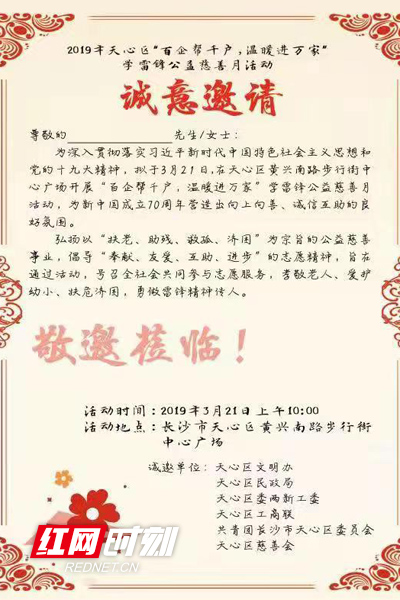 2019年天心区“百企帮千户，温暖进万家”
学雷锋公益慈善月活动
诚意邀请
尊敬的 先生/女士：
为深入贯彻落实习近平新时代中国特色社会主义思想和
党的十九大精神，拟于3月21日，在天心区黄兴南路步行街中
心广场开展“百企帮千户，温暖进万家”学雷锋公益慈善月
活动，为新中国成立70周年营造出向上向善、诚信互助的良
好氛围。
弘扬以“扶老、助残、救孤、济困”为宗旨的公益慈善
事业，倡导“奉献、友爱、互助、进步”的志愿精神，旨在
通过活动，号召全社会共同参与志愿服务，孝敬老人、爱护
幼小、扶危济困，勇做雷锋精神传人。
敬邀莅临！
活动时间：2019年3月21日上午10:00
活动地点：长沙市天心区黄兴南路步行街
中心广场
诚邀单位：天心区文明办
天心区民政局
天心区委两新工委
天心区工商联
共青团长沙市天心区委员会
天心区慈善会
红网时刻
REDNET.CN